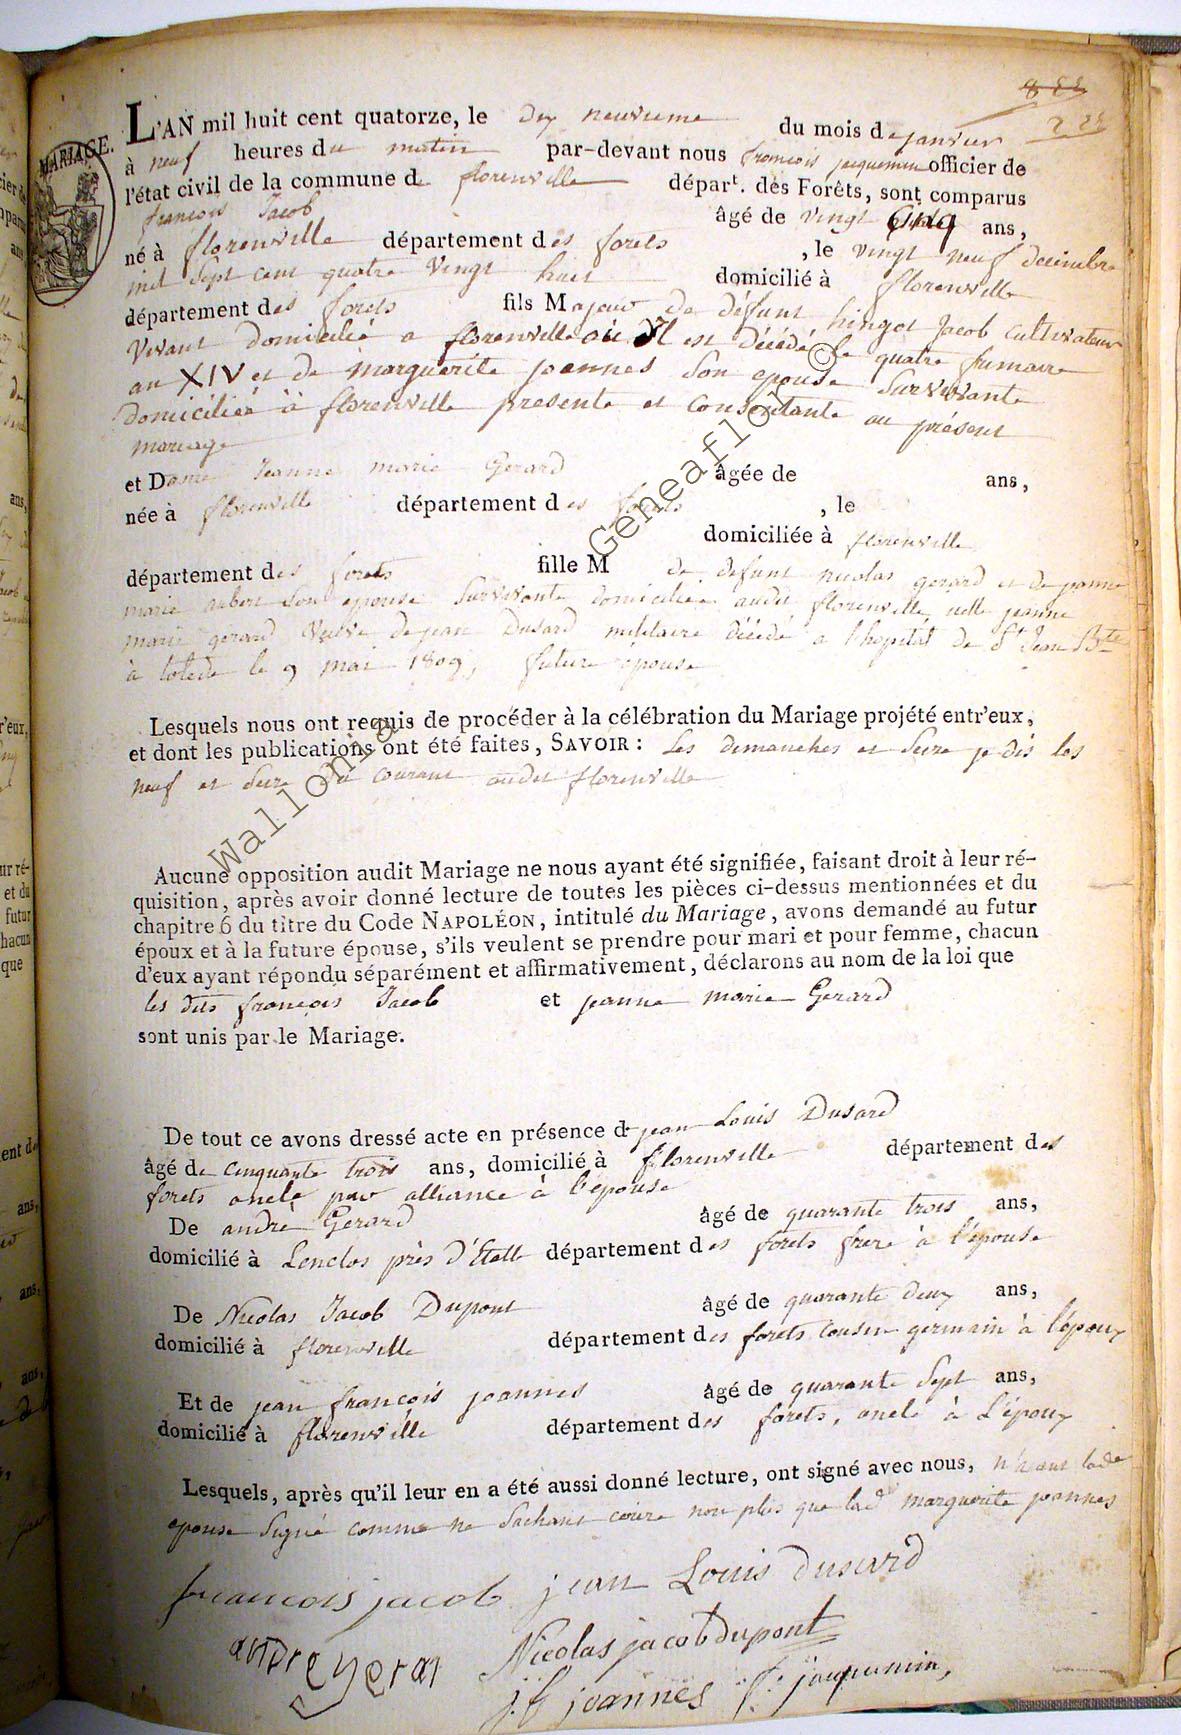 MARIAGE.
L'AN mil huit cent quatorze, le dix neuvieme du mois de janvier
à neuf heures du matin par-devant nous francois jacquemin officier de
l'état civil de la commune de florenville départ. des Forêts, sont comparus
françois Jacob âgé de vingt cinq ans,
né à florenville département des forets, le vingt neuf decembre
mil sept cent quatre vingt huit domicilié à florenville
département des forets fils Majeur de défunt hingot Jacob Cultivateur
vivant domicilié a florenville où il est décédé le quatre frimaire
an XIV et de marguerite joannes son epouse survivante
domiciliée à florenville presente et consentante au présent
mariage
et Dame Jeanne marie Gerard âgée de ans,
née à florenville département des forets, le
domiciliée à florenville
département des forets fille M de defunt nicolas gerard et de jeanne
marie aubert son epouse survivante domiciliée audit florenville, jeanne
marie gerard veuve de jean Dusard militaire décédé a l'hopital de St Jean Bte
à tolede le 9 mai 1809, future épouse
Lesquels nous ont requis de procéder à la célébration du Mariage projété entr'eux,
et dont les publications ont été faites, SAVOIR: Les dimanches et seize je dis les
neuf et seize du courant audit florenville
Aucune opposition audit Mariage ne nous ayant été signifiée, faisant droit à leur ré-
quisition, après avoir donné lecture de toutes les pièces ci-dessus mentionnées et du
chapitre 6 du titre du Code NAPOLÉON, intitulé du Mariage, avons demandé au futur
époux et à la future épouse, s'ils veulent se prendre pour mari et pour femme, chacun
d'eux ayant répondu séparément et affirmativement, déclarons au nom de la loi que
les dits françois Jacob et jeanne marie Gerard
sont unis par le Mariage.
De tout ce avons dressé acte en présence de jean Louis Dusard
âgé de cinquante trois ans, domicilié à florenville département des
forets oncle par alliance à l'epouse
De andré Gerard âgé de quarante trois ans,
domicilié à Lenclos près d'Etalle département des forets frere à l'épouse
De Nicolas Jacob Dupont âgé de quarante deux ans,
domicilié à florenville département des forets cousin germain à l'époux
Et de jean françois joannes âgé de quarante sept ans,
domicilié à florenville département des forets, oncle à L'époux
Lesquels, après qu'il leur en a été aussi donné lecture, ont signé avec nous, n'ayant lade
epouse signé comme ne sachant écrire non plus que lade marguerite joannes
francois jacob jean Louis dusard
andre gerar Nicolas jacob dupont
j. f joannes f. jacquemin,
Wallonia Geneaflor ©